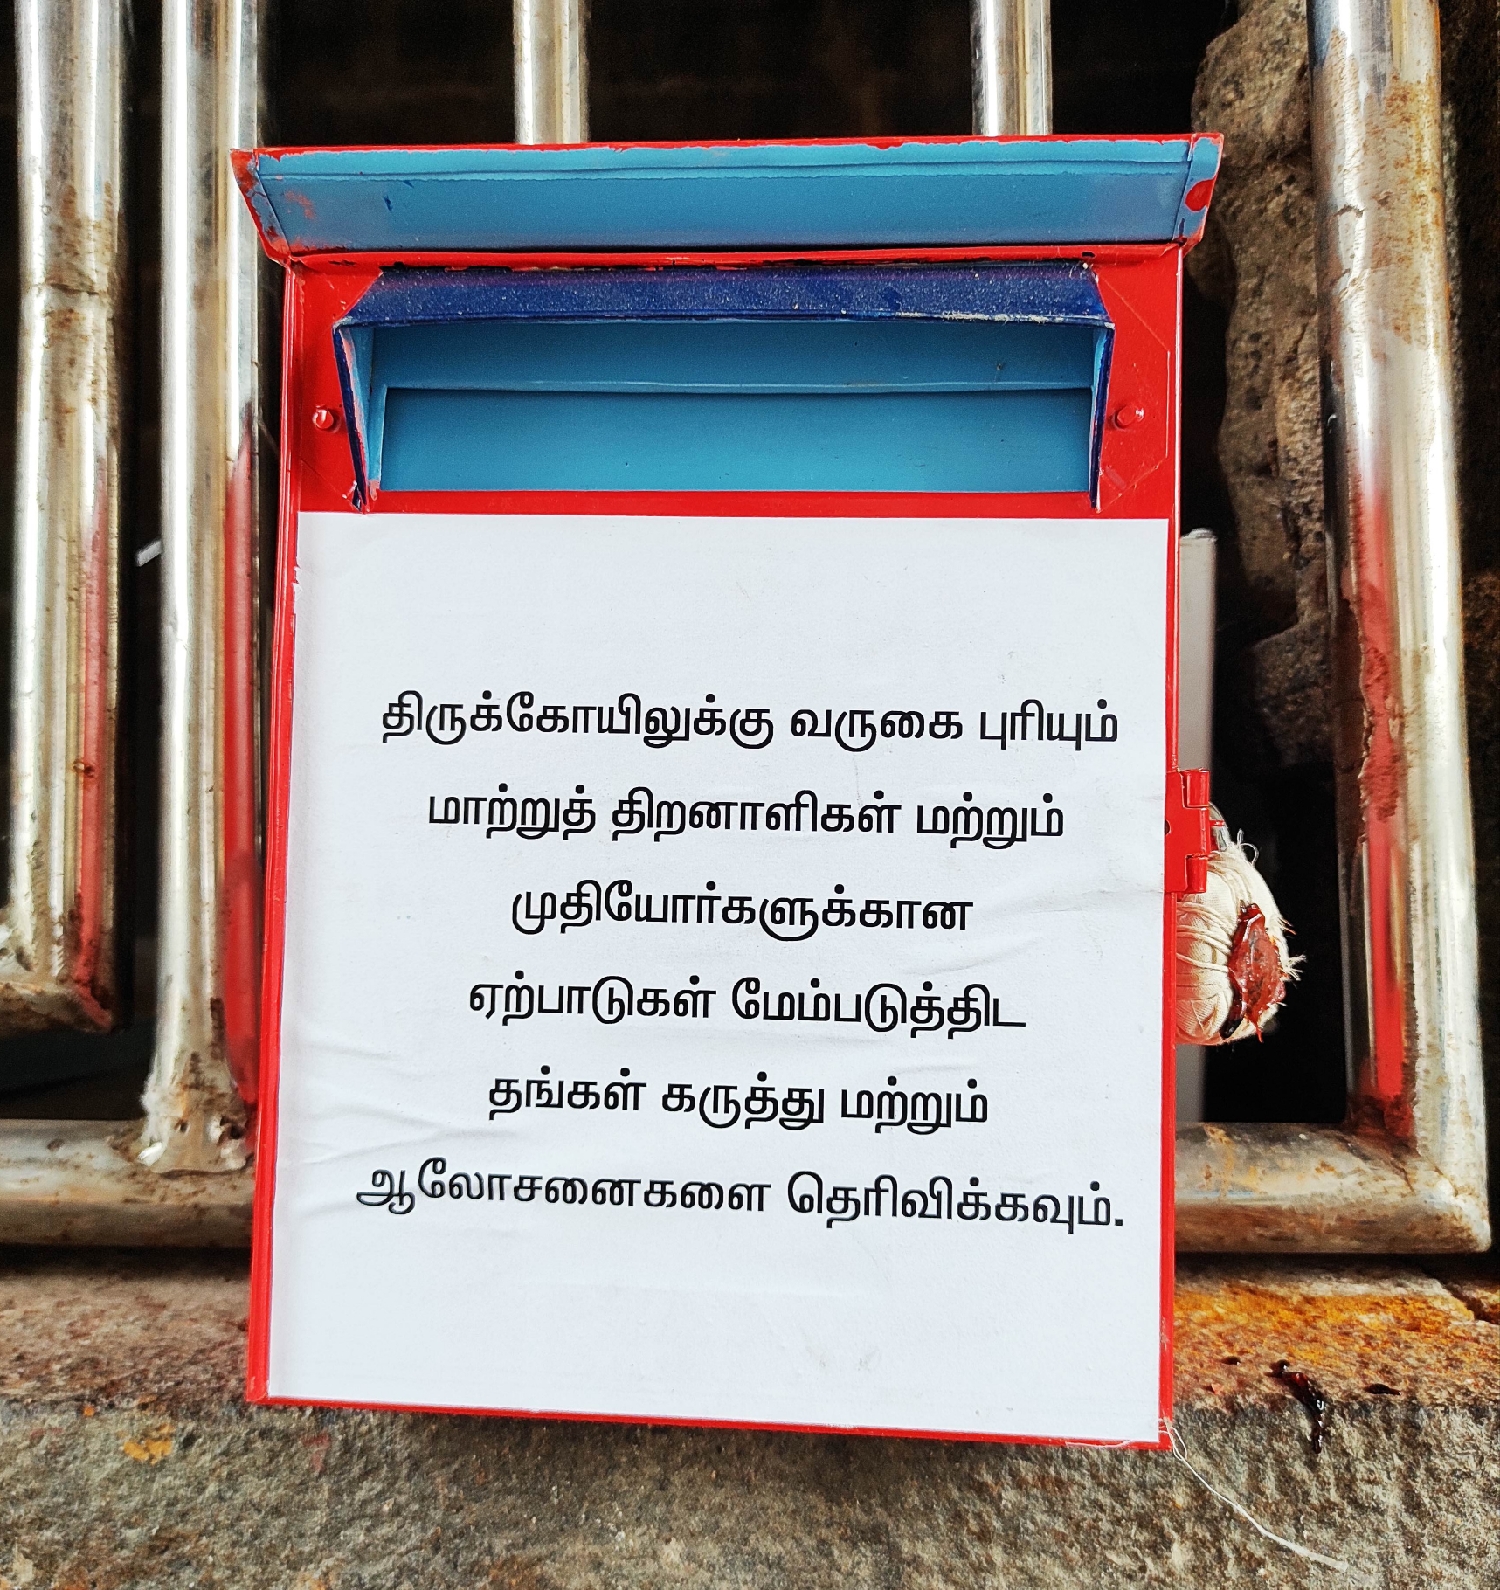 திருக்கோயிலுக்கு வருகை புரியும்
மாற்றுத் திறனாளிகள் மற்றும்
முதியோர்களுக்கான
ஏற்பாடுகள் மேம்படுத்திட
தங்கள் கருத்து மற்றும்
ஆலோசனைகளை தெரிவிக்கவும்.